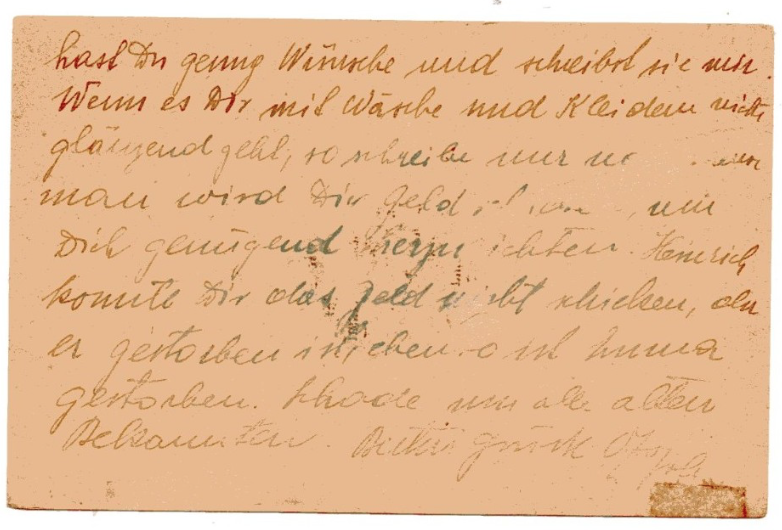 hast Du genug Wünsche und schreibst sie mir.
Wenn es Dir mit Wäsche und Kleidern nicht
glänzend geht, so schreibe nur
man wird Dir Geld um
Dich genügend
konnte Dir das Geld nicht schicken, da
er gestorben ist, ebenso ist
gestorben. Schade um alle alten
Bekannten.